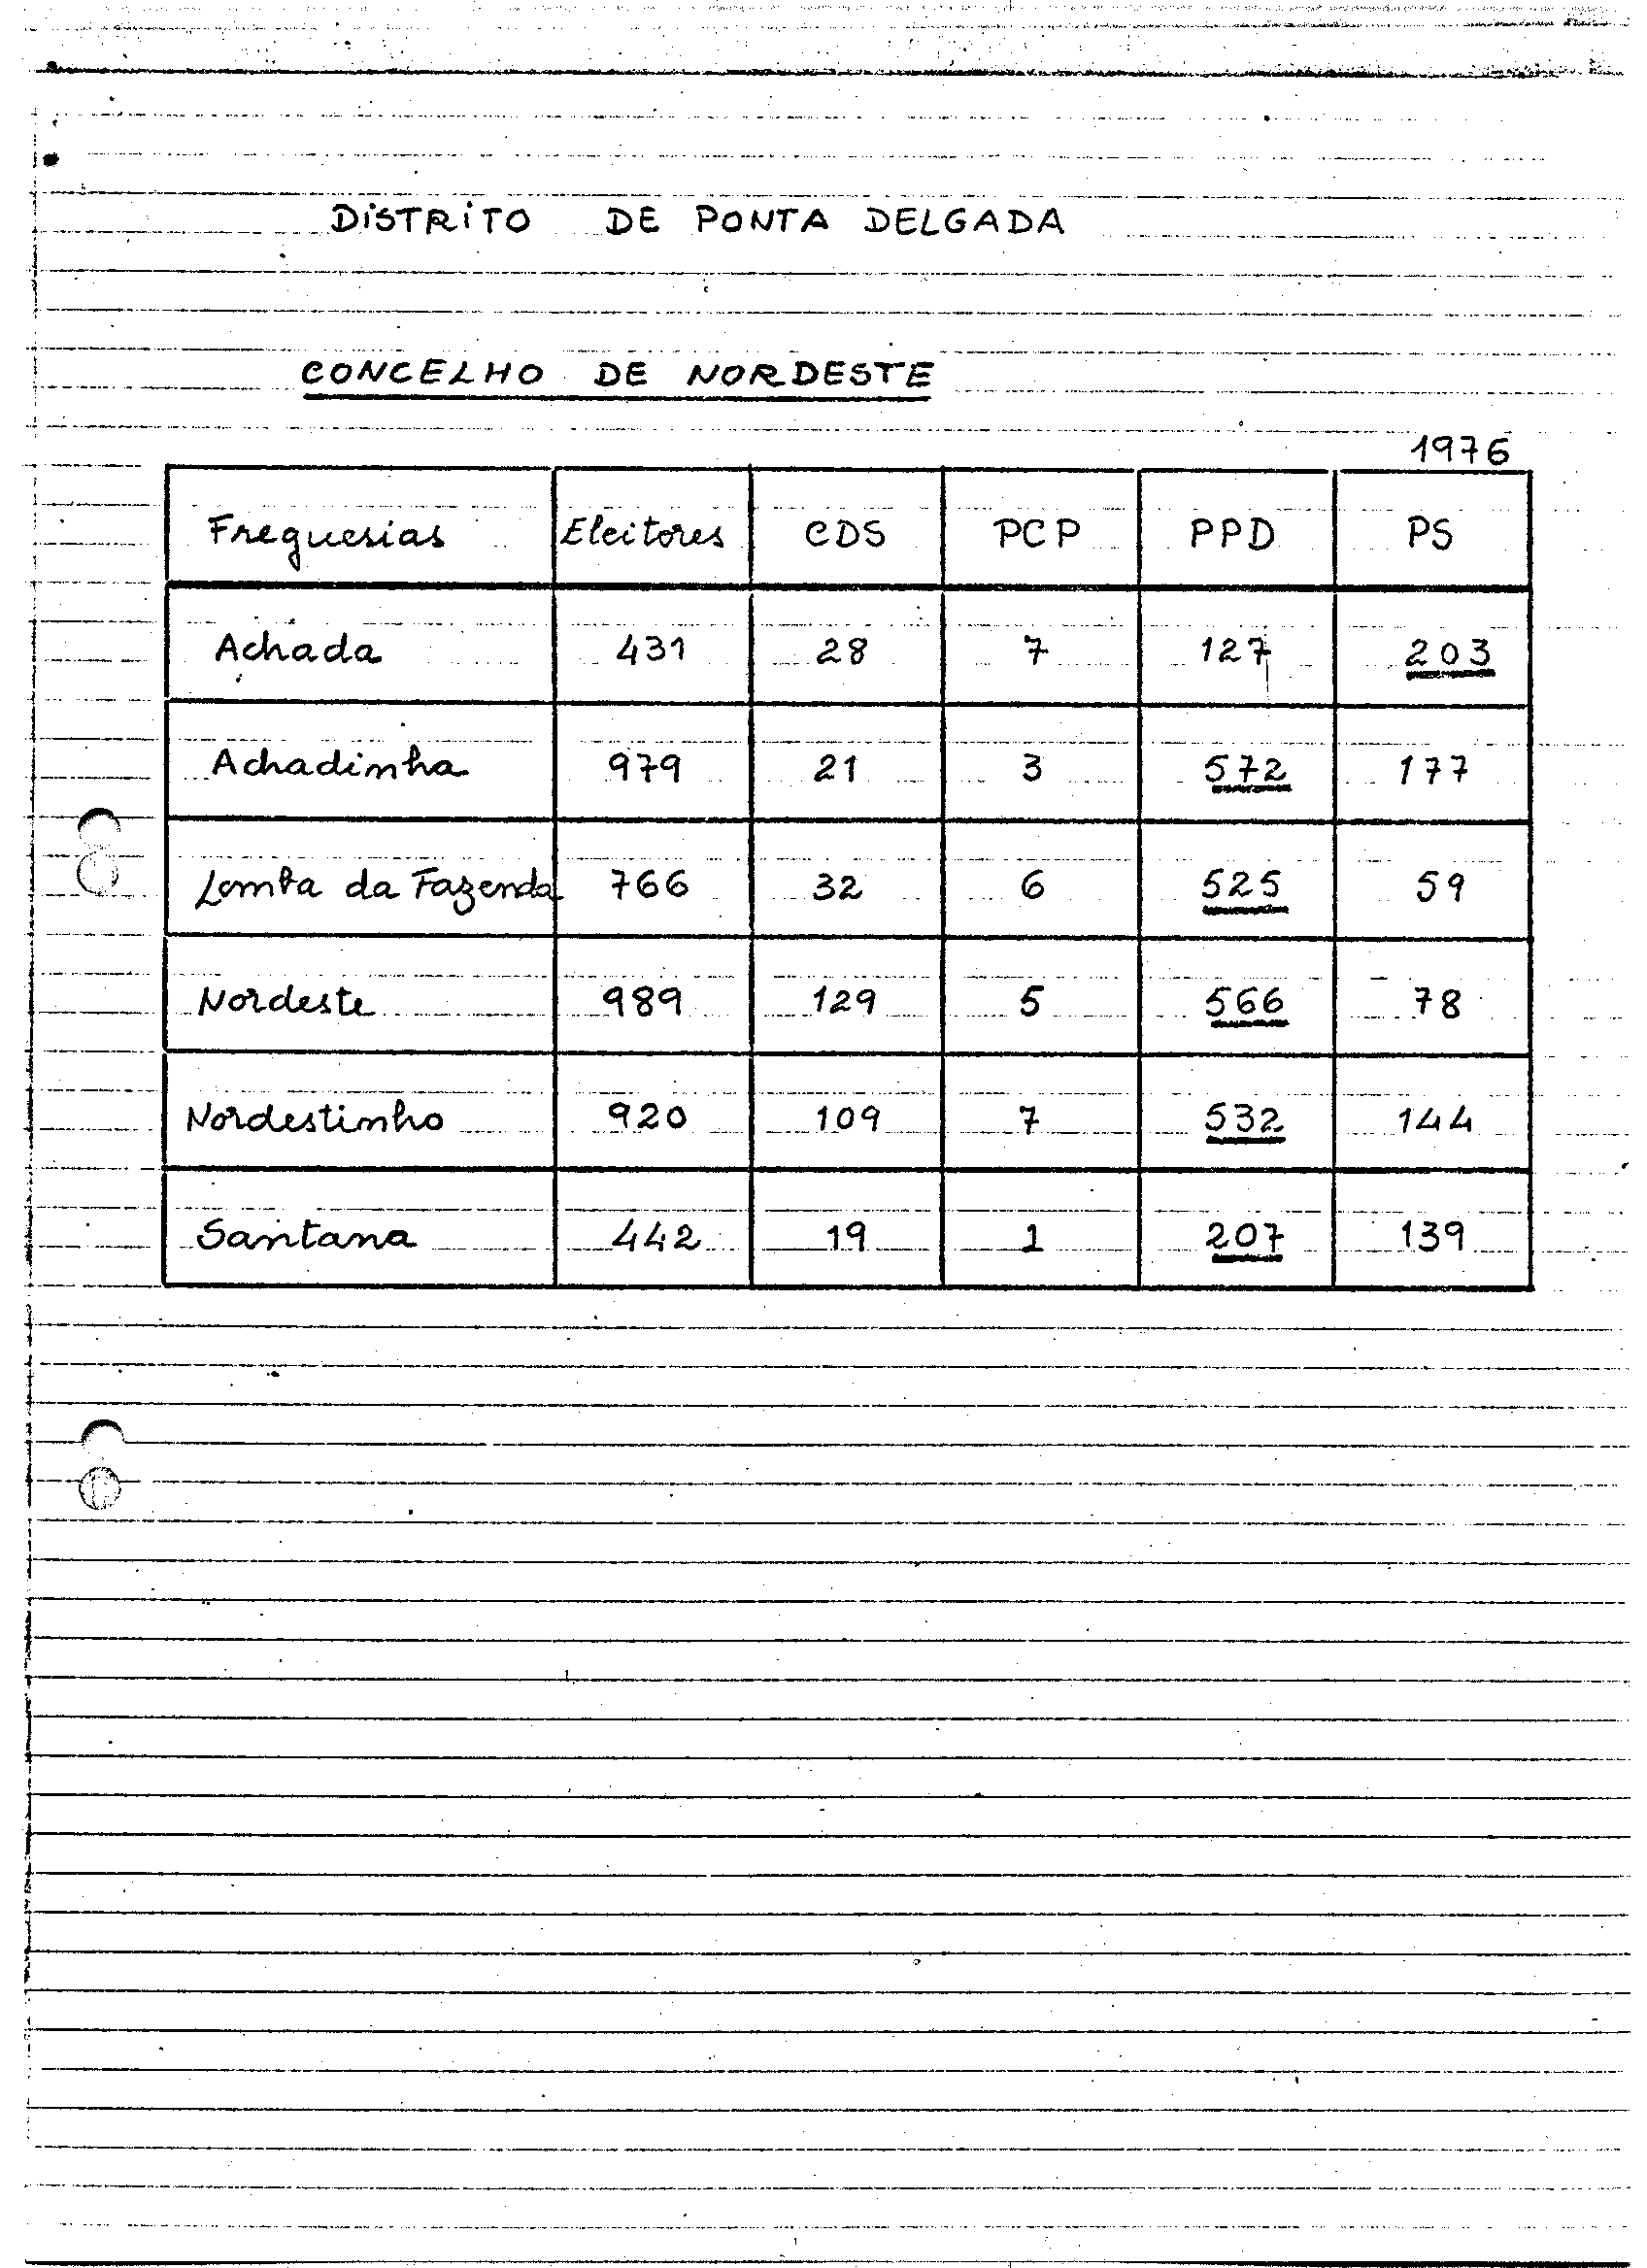 DISTRITO DE PONTA DELGADA
CONCELHO DE NORDESTE
1976
Freguesias Eleitores CDS PCP PPD PS
Achada 431 28 7 127 203
Achadinha 979 21 3 572 177
Lomba da Fazenda 766 32 6 525 59
Nordeste 989 129 5 566 78
Nordestinho 920 109 7 532 144
Santana 442 19 1 207 139